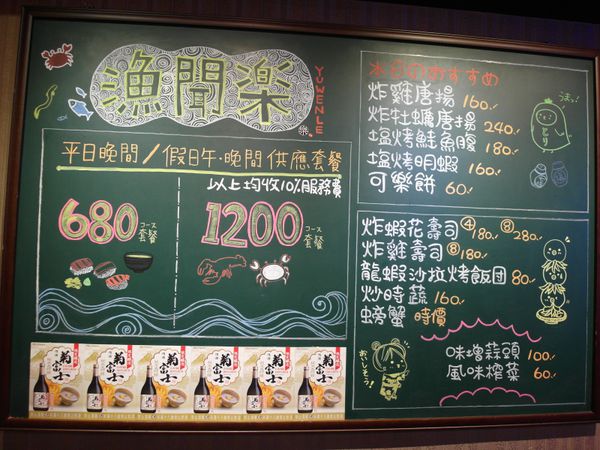 漁聞楽
YUWENLE
樂
平日晚間/假日午.晚間 供應套餐
以上均收10%服務費
680 コース套餐
1200 コース套餐
菊富士
菊富士
菊富士
菊富士
菊富士
本日のおすすめ
炸雞唐揚 160.
炸牡蠣唐揚 240.
塩烤鮭魚腹 180.
塩烤明蝦 160.
可樂餅 60.
うまっ!
とり
炸蝦花壽司 ④180. ⑧280.
炸雞壽司 ⑧180.
龍蝦沙拉烤飯団 80.
炒時蔬 160.
螃蟹 時價
おいしそう!
味增蒜頭 100.
風味榨菜 60.